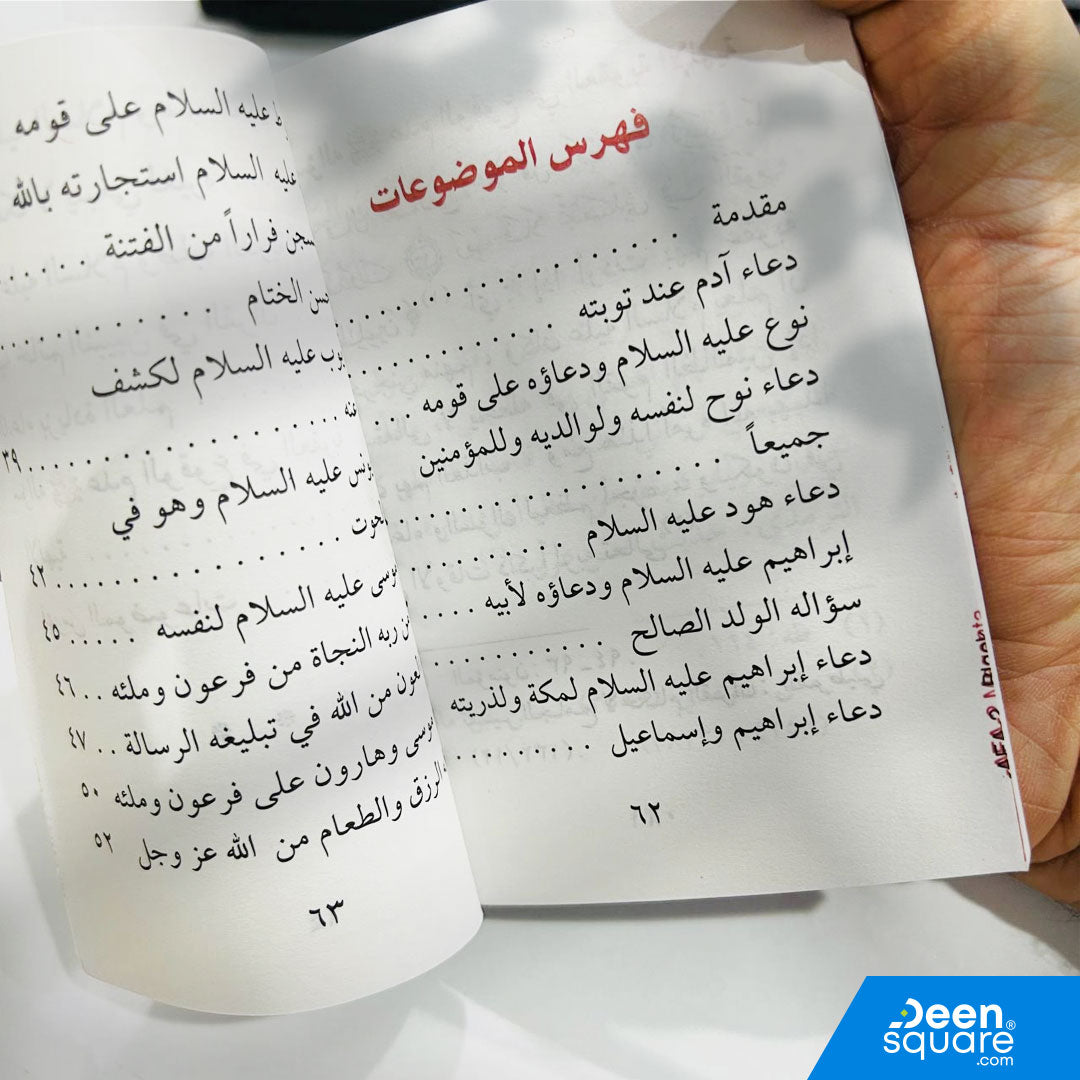 فهرس الموضوعات
مقدمة . . . . . . . . . . . . . . . . . .
دعاء آدم عند توبته . . . . . . . . . . . .
نوع عليه السلام ودعاؤه على قومه . . .
دعاء نوح لنفسه ولوالديه وللمؤمنين
جميعاً . . . . . . . . . . . . . . . . . .
دعاء هود عليه السلام . . . . . . . . . .
إبراهيم عليه السلام ودعاؤه لأبيه . . . .
سؤاله الولد الصالح . . . . . . . . . . .
دعاء إبراهيم عليه السلام لمكة ولذريته
دعاء إبراهيم وإسماعيل . . . . . . . . . .
٦٢
عليه السلام على قومه
عليه السلام استجارته بالله
فراراً من الفتنة . . . . . .
الختام . . . . . . . . . . . .
عليه السلام لكشف
. . . . . . . . . . . . . . . . ٣٩
عليه السلام وهو في
. . . . . . . . . . . . . . . . ٤٢
عليه السلام لنفسه . . . . . ٤٥
ربه النجاة من فرعون وملئه . . ٤٦
من الله في تبليغه الرسالة . . ٤٧
وهارون على فرعون وملئه ٥٠
الرزق والطعام من الله عز وجل ٥٢
٦٣
Deen
square®
.com